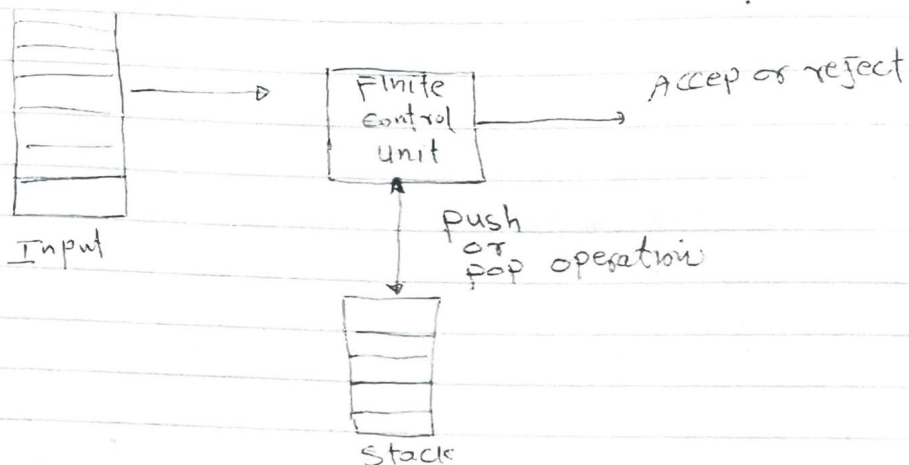 Finite
control
unit
Accep or reject
Input
push
or
pop operation
Stack